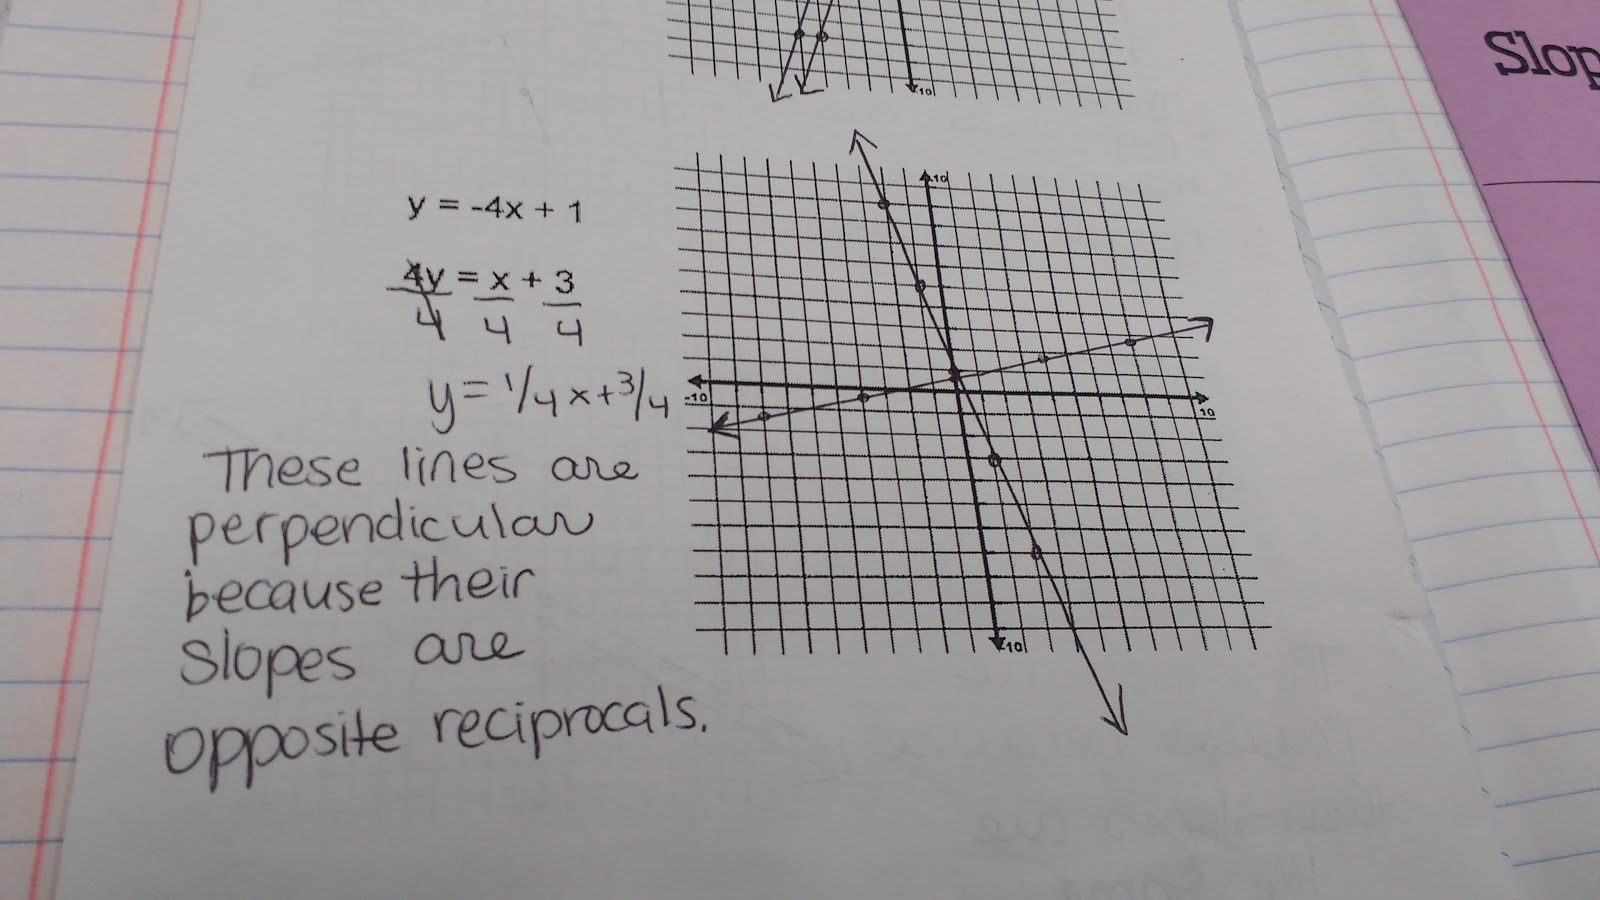 Slop
10
y = -4x + 1
4y = x + 3
4 4 4
y = 1/4 x + 3/4
These lines are
perpendicular
because their
slopes are
opposite reciprocals.
10
-10
10
10